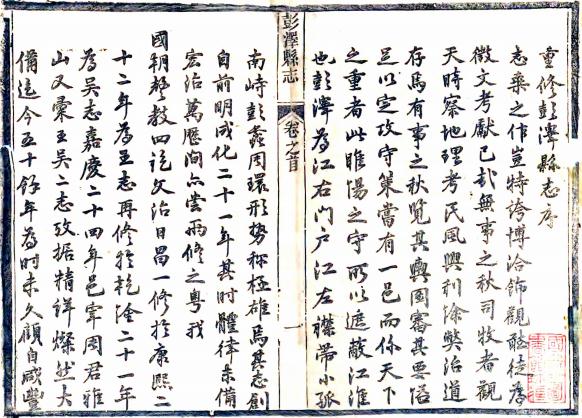 重修彭澤縣志序
志乘之作豈特誇博洽飾觀聽徒為
徵文考獻已哉無事之秋司牧者觀
天時察地理考民風興利除弊治道
存焉有事之秋覽其輿圖審其要害
足以定攻守策當有一邑而係天下
之重者此睢陽之守所以遮蔽江淮
也彭澤為江右門戶江左襟帶小孤
彭澤縣志
卷之首
一
南峙彭蠡周環形勢称極雄焉其志創
自前明成化二十一年其時體律未備
宏治萬曆間亦嘗兩修之粵我
國朝聲教四訖文治日昌一修於康熙二
十二年為王志再修於乾隆二十一年
為吳志嘉慶二十四年邑宰周君雅
山又彙王吳二志攷據精詳燦然大
備迄今五十餘年為時未久顧自咸豐